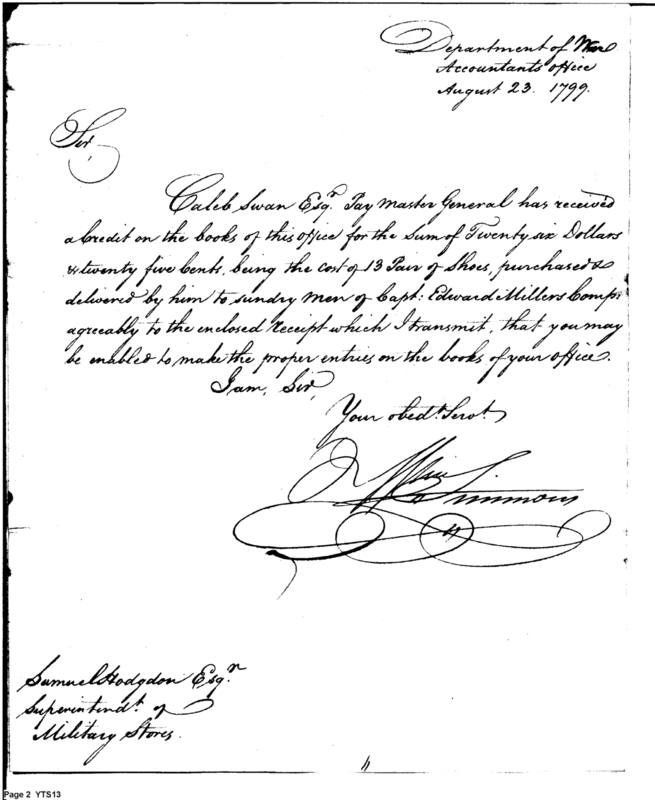 Department of War
Accountants office
August 23. 1799.
Sir,
Caleb Swan Esqr. Pay Master General has received
a Credit on the books of this office for the Sum of Twenty six Dollars
& twenty five Cents, being the cost of 13 Pair of Shoes, purchased &
delivered by him to sundry men of Capt: Edward Millers Compy:
agreeably to the enclosed receipt which I transmit, that you may
be enabled to make the proper entries on the books of your office.
I am, Sir,
Your obedt. Servt.
Wm Simmons
Samuel Hodgdon Esqr.
Superintendt. of
Military Stores.
Page 2 YTS13